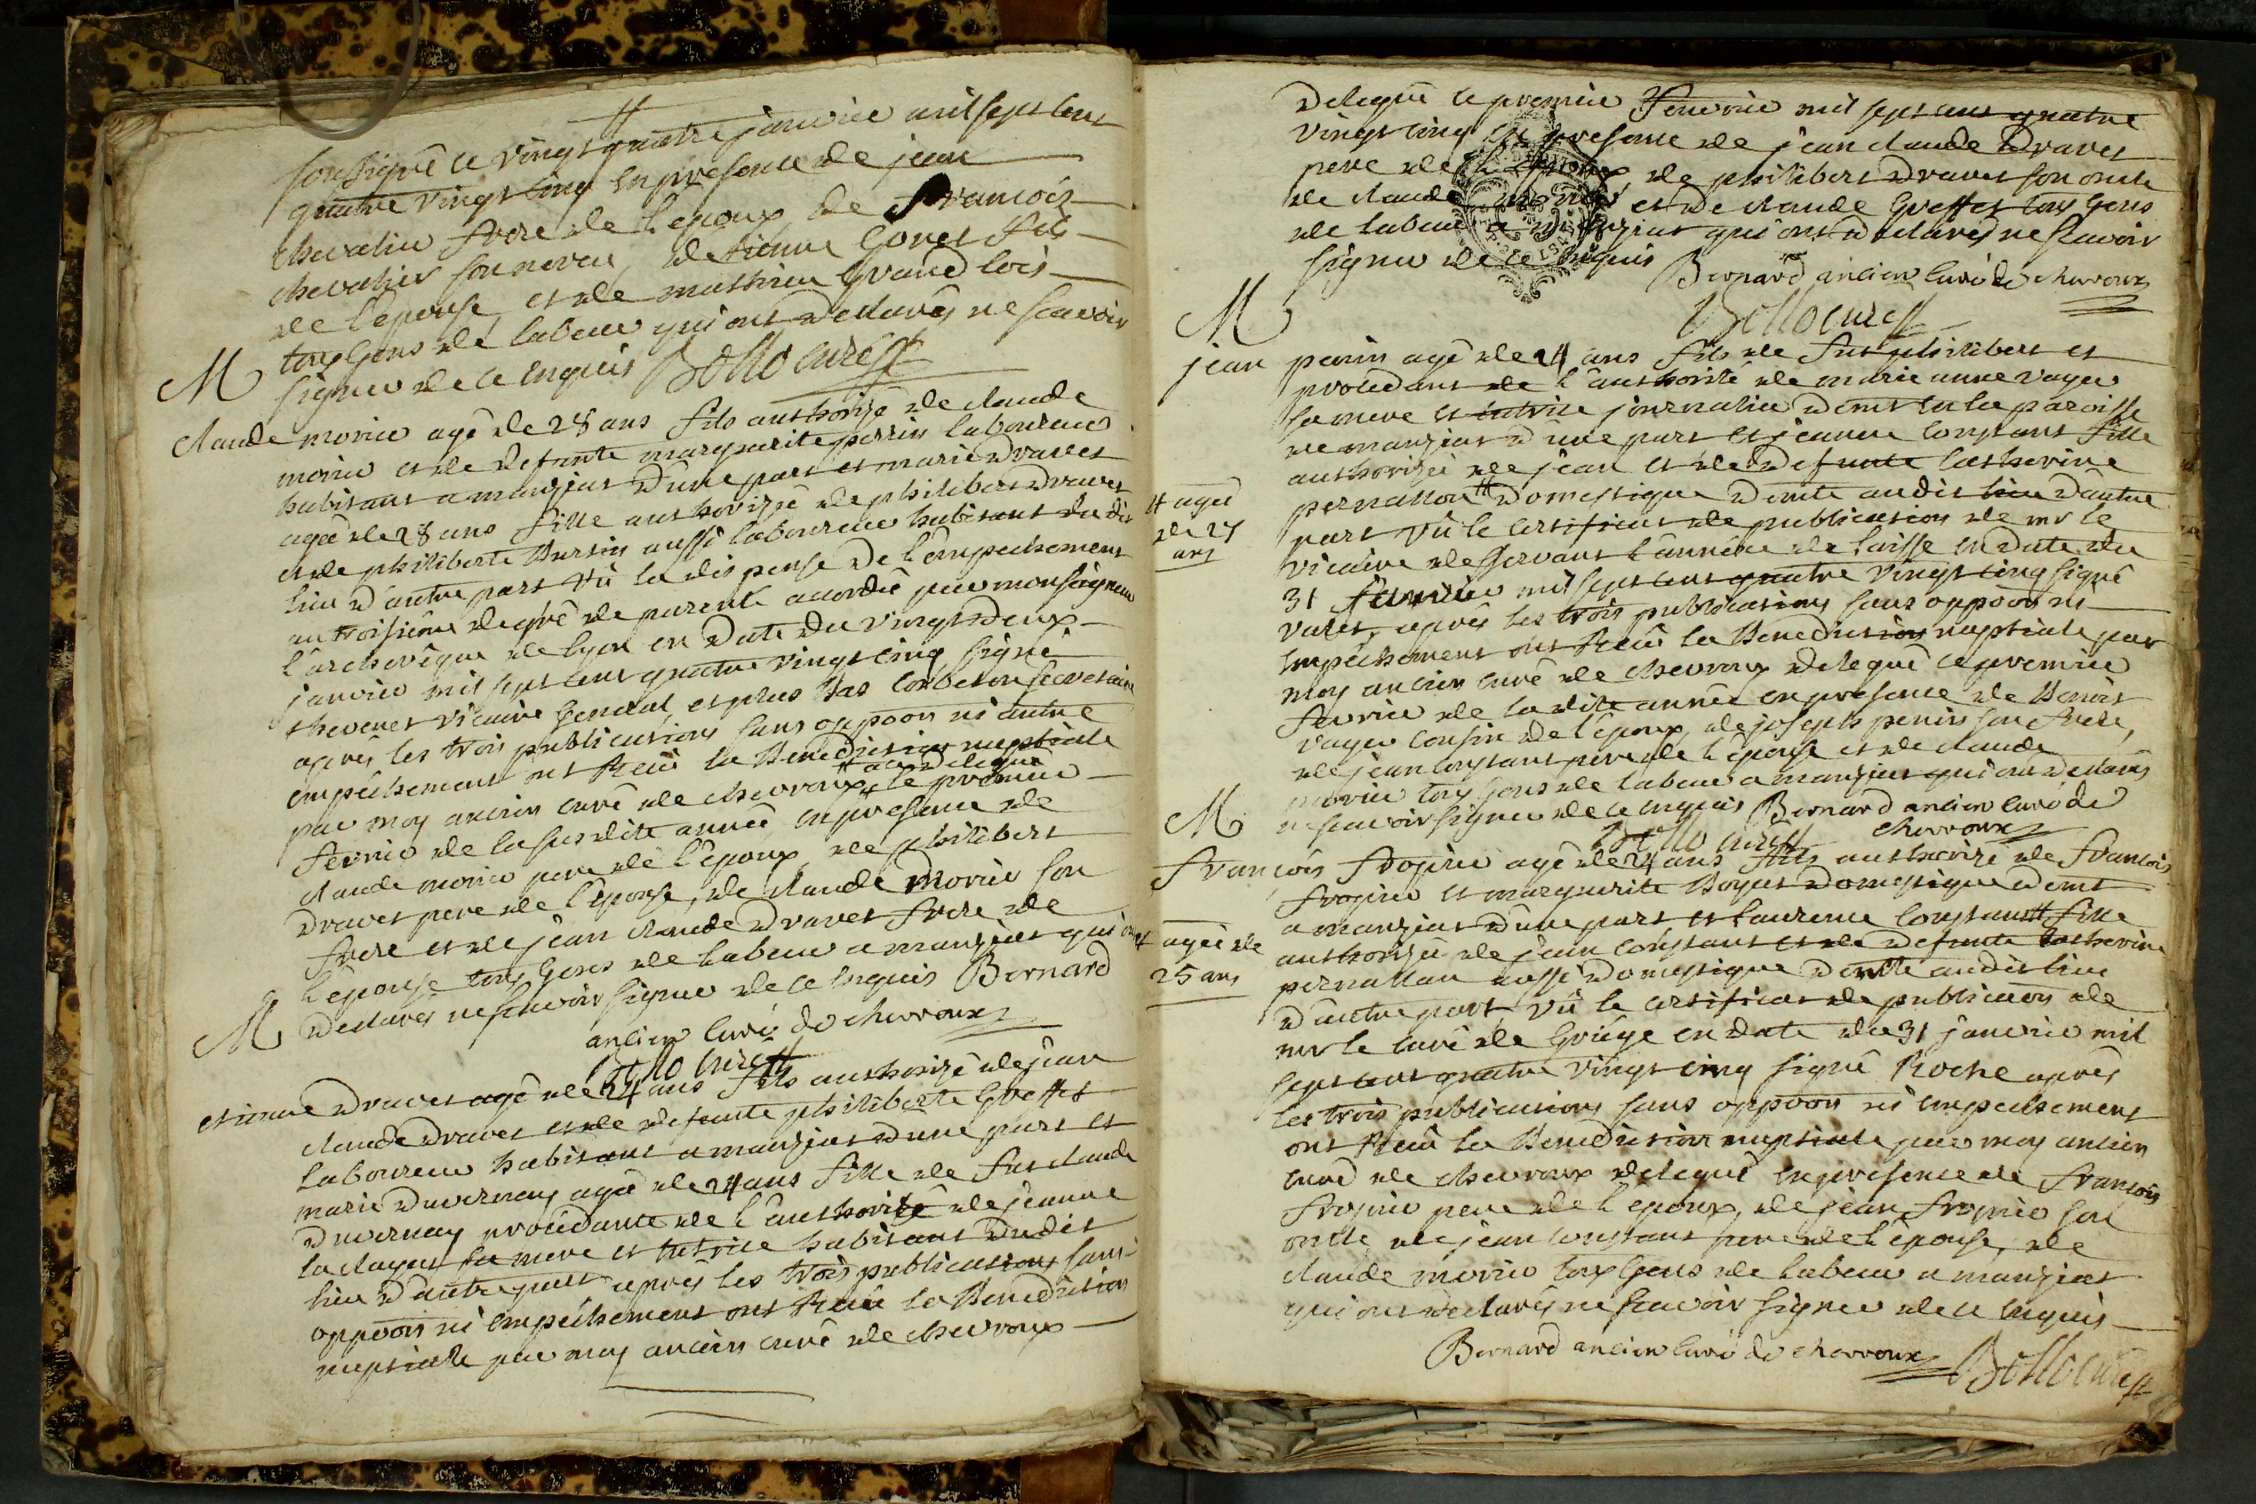 soussigné le vingt quatre janvier mil sept cent
quatre vingt cinq en presence de jean
chevalier frere de l'epoux de françois
chevalier son neveu, detienne Gonet fils
de l'epouse, et de mathieu Grand lois
tous Gens de labeur qui ont declarés ne scavoir
signer de ce enquis Bollo curé
M
claude morier agé de 28 ans fils authorisé de claude
morier et de defunte marguarite perrin laboureur
habitant a manziat d'une part et marie dravet
agée de 28 ans fille authorizée de philibert dravet
et de philiberte Bursin aussi laboureur habitant du dit
lieu d'autre part vû la dispense de l'empechement
au troisieme degré de parenté accordée par monseigneur
l'archevêque de lyon en date du vingt deux
janvier mil sept cent quatre vingt cinq signé
thevenet vicaire General, et plus bas corbeton secretaire
après les trois publications sans oppoon ni autre
empéchement ont Reçu la Benediction nuptiale
par moy ancien curé de chevroux # a ce delegué le premier
fevrier de la susdite année, en presence de
claude morier pere de l'epoux, de philibert
dravet pere de l'epouse, de claude morier son
frere et de jean claude dravet frere de
l'epouse tous Gens de labeur a manziat qui ont
declarés ne scavoir signer de ce enquis Bernard
ancien curé de chevroux
Bollo curé
M
etienne dravet agé de 24 ans fils authorizé de jean
claude dravet et de defunte philiberte Greffet
laboureur habitant a manziat d'une part et
marie duvernay agée de 24 ans fille de fut claude
duvernay procédante de l'authorité de jeanne
la clayet sa mere et tutrice habitant du dit
lieu d'autre part après les trois publications sans
oppoon ni empéchement ont Reçu la Benediction
nuptiale par moy ancien curé de chevroux
delegué le premier fevrier mil sept cent quatre
vingt cinq en presence de jean claude dravet
pere de l'epoux de philibert dravet son oncle
de claude morier et de claude Greffet tous Gens
de labeur a manziat qui ont declarés ne scavoir
signer de ce enquis
Bernard ancien curé de chevroux
Bollo curé
M
jean perrin agé de 24 ans fils de fut philibert et
procedant de l'authorité de marie anne vayer
sa mere et tutrice journalier demt en la paroisse
de manziat d'une part et jeanne constant fille
authorisée de jean et de defunte catherine
pernatton # domestique demte au dit lieu d'autre
# agée
de 27
ans
part vû le certificat de publication de mr le
vicaire de servant l'annexe de laisse en date du
31 janvier mil sept cent quatre vingt cinq signé
varet, après les trois publications sans oppoon ni
empéchement ont Reçu la Benediction nuptiale par
moy ancien curé de chevroux delegué le premier
fevrier de la dite année en presence de Benoit
vayer cousin de l'epoux, de joseph perrin son frere,
de jean constant pere de l'epouse et de claude
morier tous Gens de labeur a manziat qui ont declarés
ne scavoir signer de ce enquis Bernard ancien curé de
chevroux
Bollo curé
M
françois fropier agé de 24 ans fils authorizé de françois
fropier et marguerite Boyat domestique demt
a manziat d'une part et laurence constant # fille
# agée de
25 ans
authorizée de jean constant et de defunte catherine
pernatton aussi domestique demte au dit lieu
d'autre part, vû le certificat de publicaon de
mr le curé de Griège en date du 31 janvier mil
sept cent quatre vingt cinq signé Roche après
les trois publications sans oppoon ni empechement
ont Reçu la Benediction nuptiale par moy ancien
curé de chevroux delegué en presence de françois
fropier pere de l'epoux, de jean fropier son
oncle de jean constant pere de l'epouse, de
claude morier tous Gens de labeur a manziat
qui ont declarés ne scavoir signer de ce enquis
Bernard ancien curé de chevroux Bollo curé